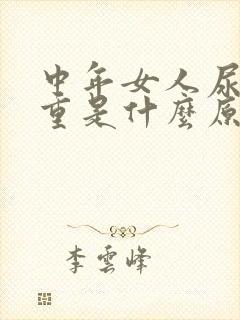 中年女人尿
重是什麼原
李雲峰